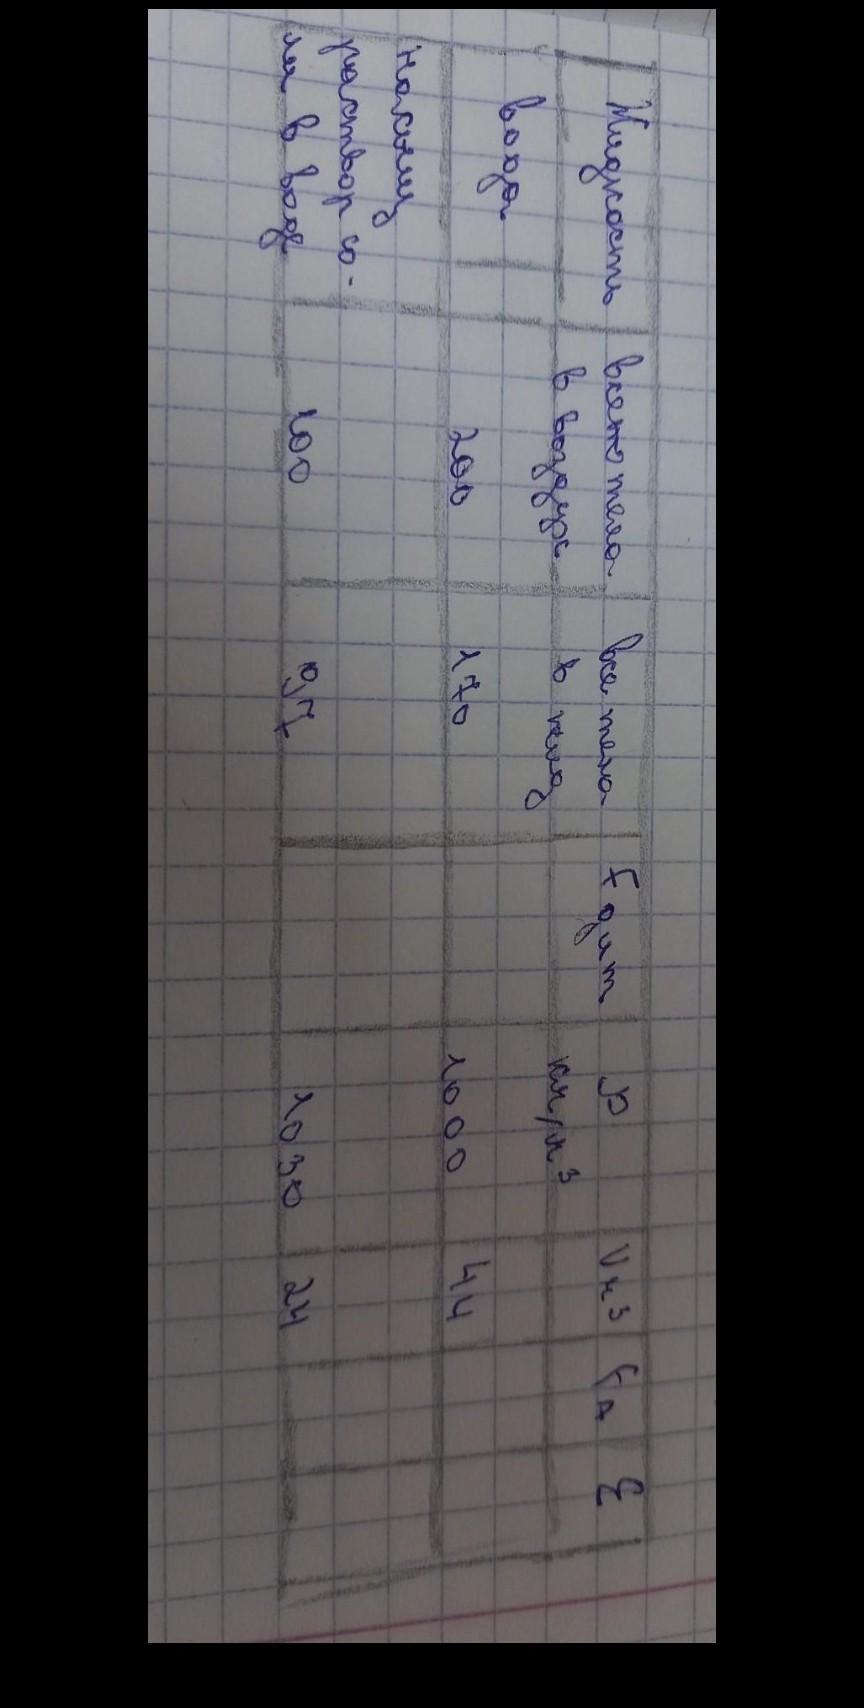 Жидкость
вес тела
в воздухе
вес тела
в жид
F дит
ρ
кг/м³
V м³
FA
ε
вода
200
170
1000
44
Насыщ
раствор со-
ли в вод
100
0,7
1030
24